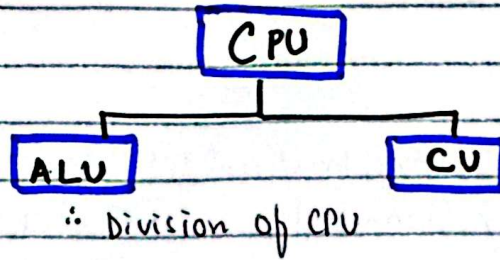 CPU
ALU CU
∴ Division of CPU